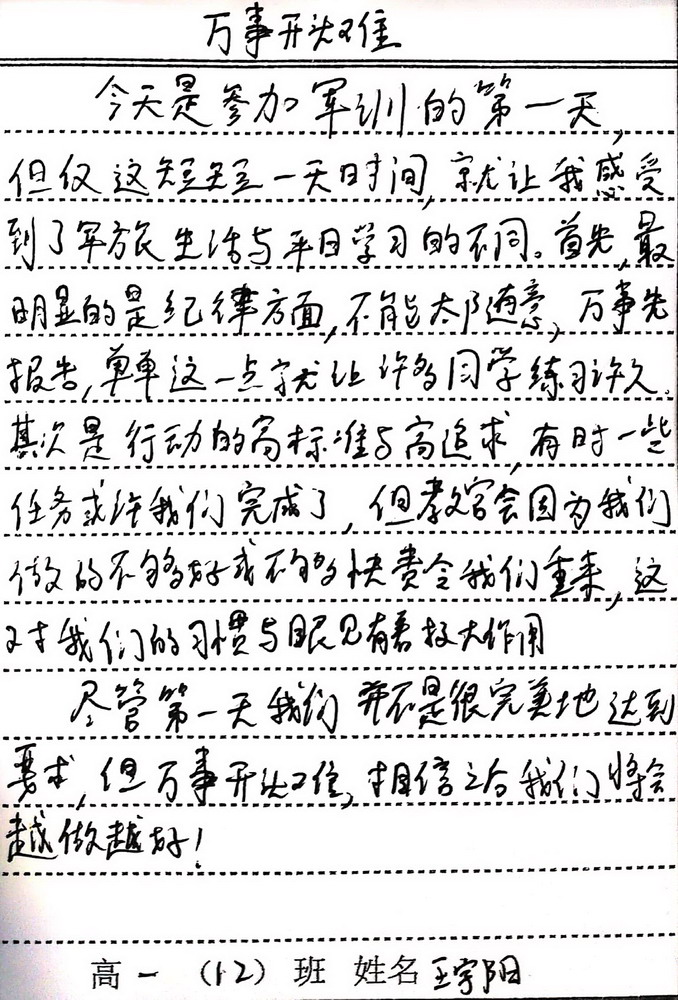 万事开头难
今天是参加军训的第一天,
但仅这短短一天时间,就让我感受
到了军旅生活与平日学习的不同。首先,最
明显的是纪律方面,不能太随意,万事先
报告,单单这一点就让许多同学练习许久。
其次是行动的高标准与高追求,有时一些
任务或许我们完成了,但教官会因为我们
做的不够好或不够快责令我们重来,这
对我们的习惯与眼见有着极大作用
尽管第一天我们并不是很完美地达到
要求,但万事开头难,相信之后我们将会
越做越好!
高一(12)班 姓名 王宇阳